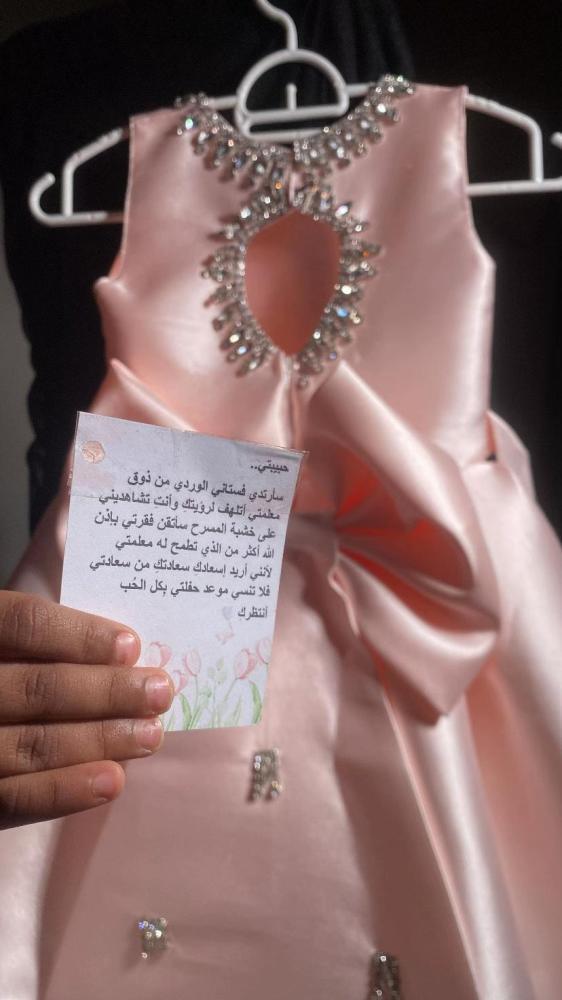 حبيبتي..
سأرتدي فستاني الوردي من ذوق
معلمتي أتلهف لرؤيتكِ وأنتِ تشاهديني
على خشبة المسرح سأتقن فقرتي بإذن
الله أكثر من الذي تطمح له معلمتي
لأنني أريد إسعادك سعادتكِ من سعادتي
فلا تنسي موعد حفلتي بكل الحُب
أنتظرك